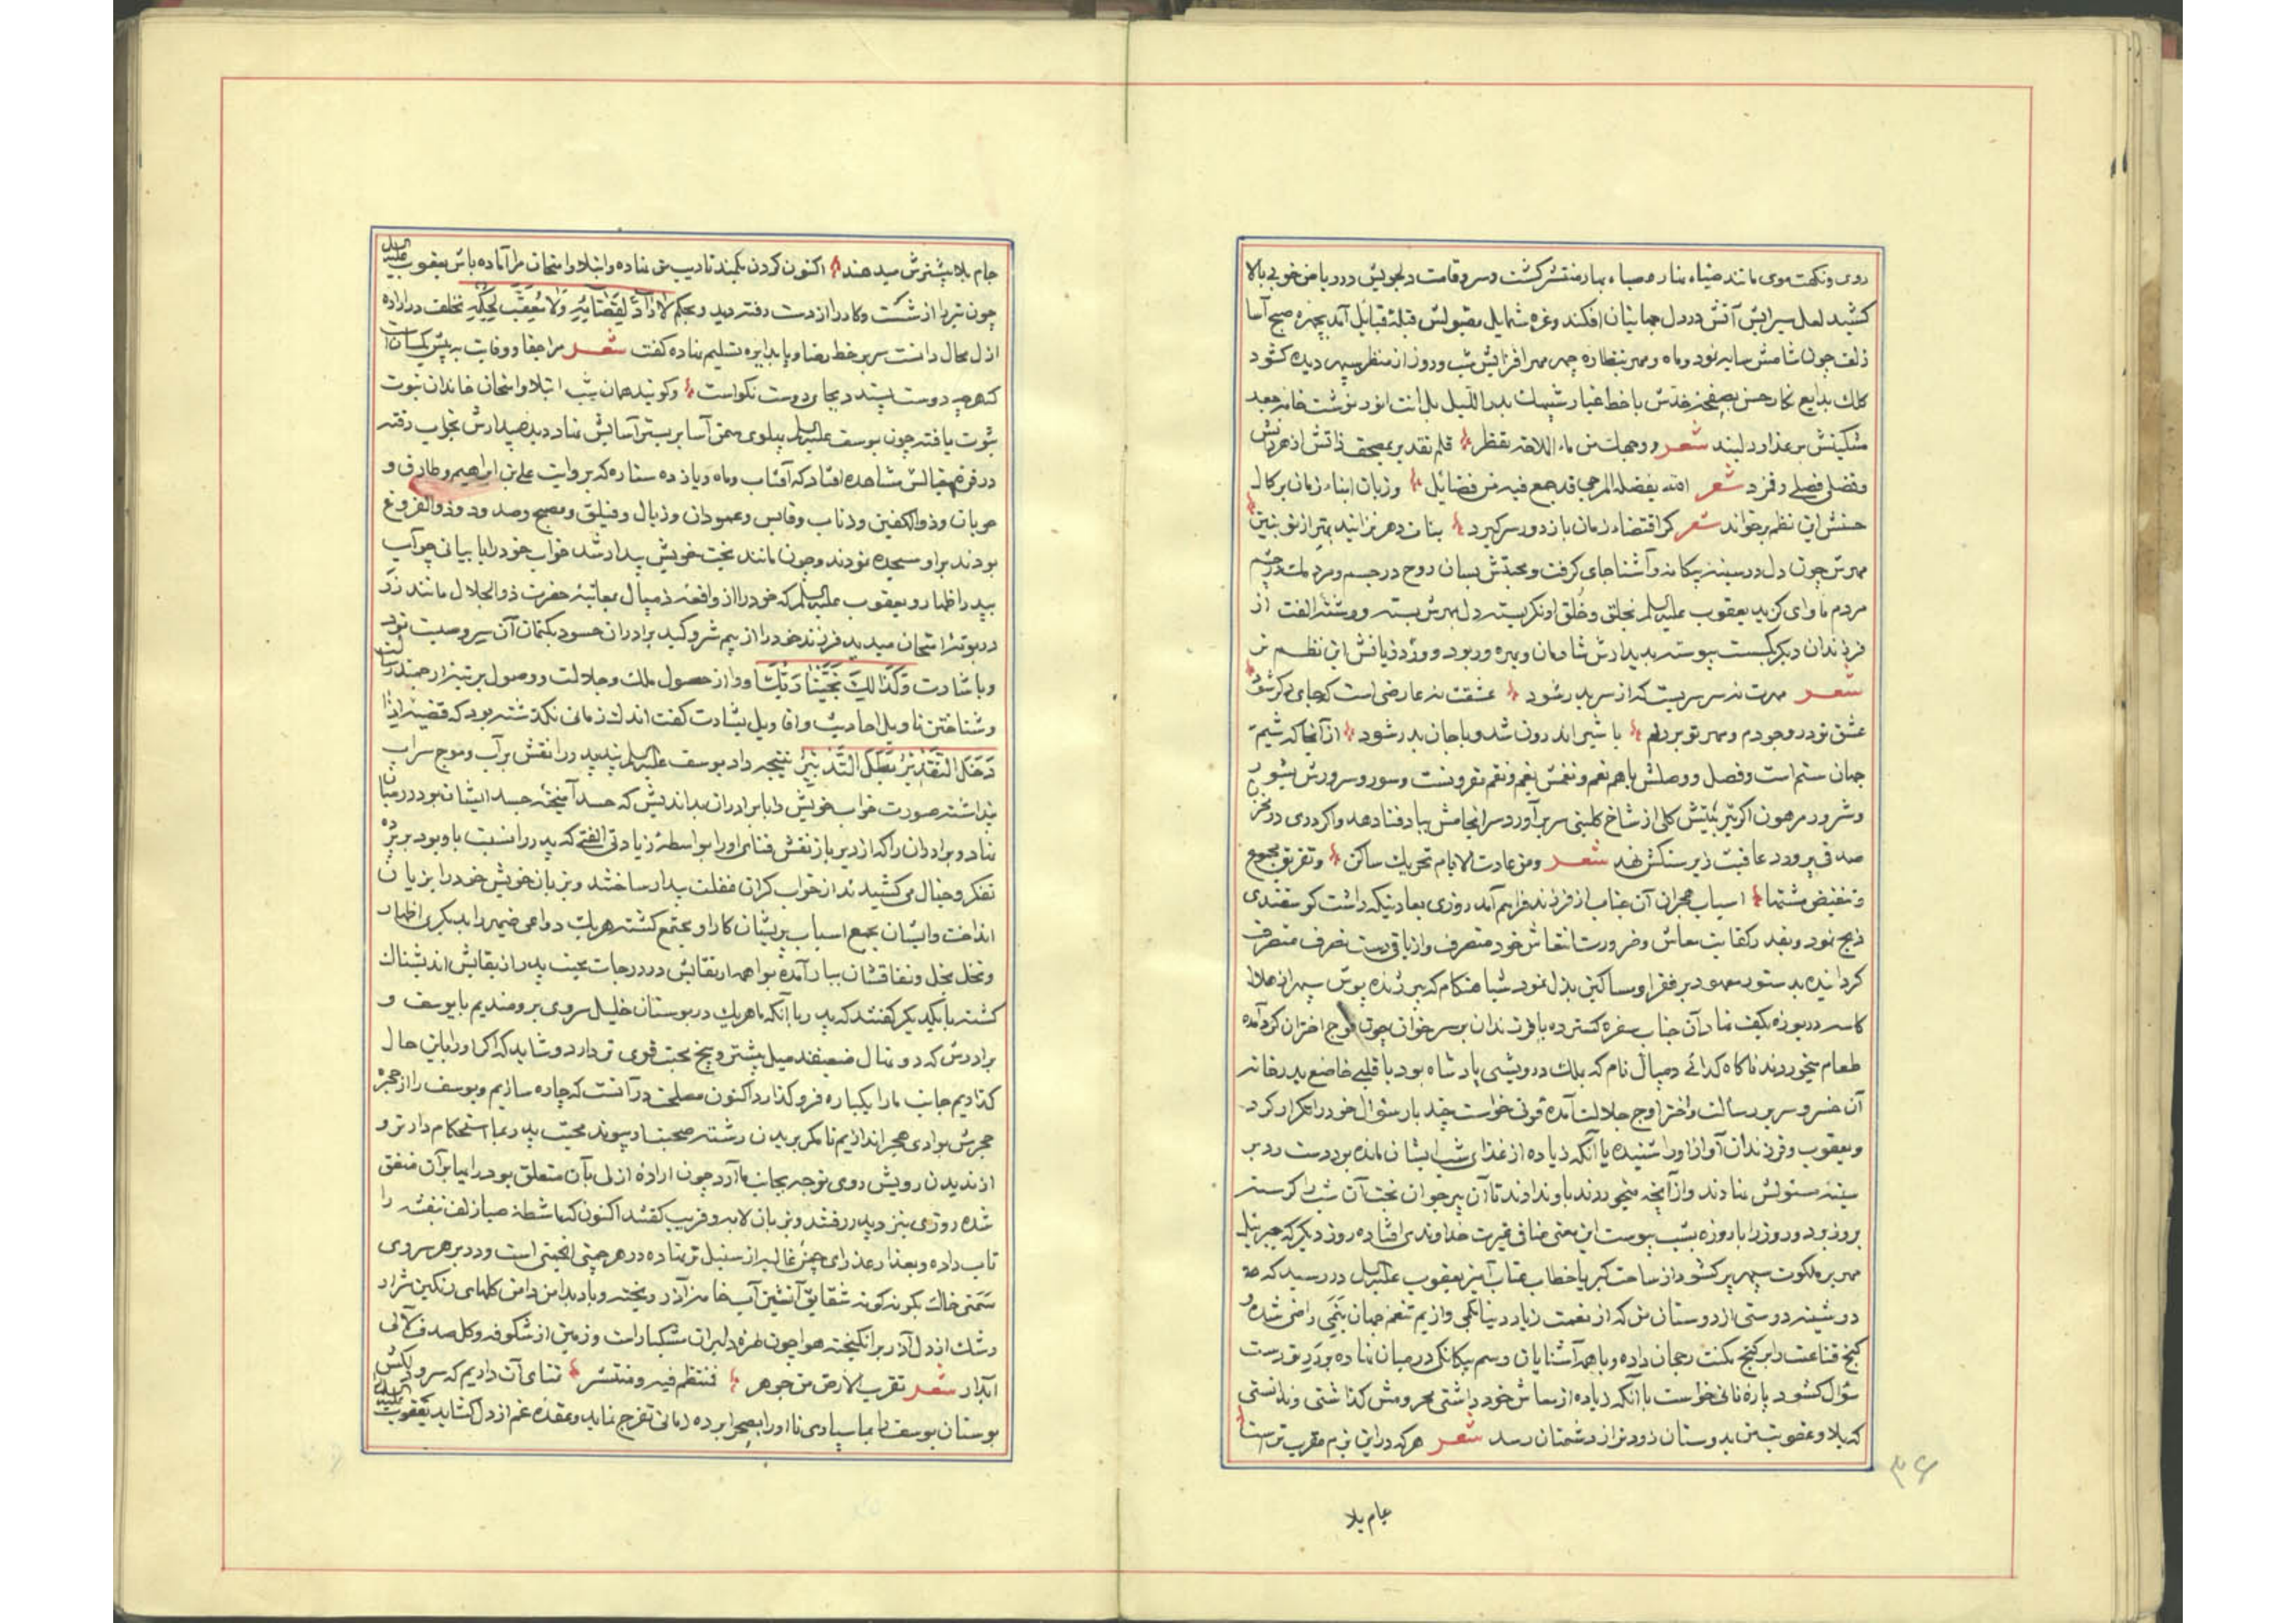 روی و نکهت موی مانند ضیاء بیار و صباء بهار منتشر کشت و سرو قامت دلجویش در ریاض خوبی بالا
کشید لعل سیرابش آتش در دل جهانیان افکند و غره شمایل مقبولش قبلهٔ قبائل آمد بچهره صبح آسا
زلف چون شامش سایه نمود و ماه و مهر بنظاره چهر مهر افزایش شب و روز از منظر سپهر دیده کشود
کلک بدایع نکار حسن بصفحه خدش با خط غبار شبهات بدر اللیل بل انت انور نوشت خامه جعد
مشکینش بر عذار دلبند شعر و وجهك من ماء الملاحة یقطر قلم تقدیر بمصحف ذاتش از هر دانش
و فضلی فصلی رقم زد شعر جمع فیه من فضائل و زبان ابناء زمان بر کمال
حسنش این نظم برخواند شعر کر اقتضاء زمان باز دور سر کیرد بنات دهر نزایند بهتر از تو بنین
مهرش چون دل در سینه بیکانه و آشنا جای کرفت و محبتش بسان روح در جسم و مردمك در چشم
مردم ماوای کزید یعقوب علیه السلم بخلق و خُلق او نکریسته دل بمهرش بسته و رشته الفت از
فرزندان دیکر بکسست پیوسته بدیدارش شادمان و بهره ور بود و ورد زبانش این نظم تر
شعر مهرت نه سرسریست که از سر بدر شود عشقت نه عارضی است که جای دکر شود
عشق تو در وجودم و مهر تو بر دلم با شیر اندرون شد و با جان بدر شود از آنجا که شیمهٔ
جهان ستم است و فصل و وصلش باهم نعم و نفس بغم و نقم مقرونست و سور و سرورش بشور
و شرور مرهون اکر بتربیتش کلی از شاخ کلبنی سر برآورد سرانجامش بباد فنا دهد و اکر دری در مخزن
صدف بپرورد عاقبت زیر سنکش نهد شعر و من عادت الایام تحریك ساکن و تفریق مجموع
و تنغیض مشتها اسباب هجران آن جناب از فرزند فراهم آمد روزی بعادتیکه داشت کوسفندی
ذبح نمود و بقدر کفایت معاش و ضرورت انتعاش خود متصرف و از باقی دست تصرف منصرف
کردانیده بدستور معهود بر فقرا و مساکین بذل نمود شباهنکام که پیر ژنده پوش سپهر از هلال
کاسه دریوزه بکف نهاد آن جناب سفره کسترده با فرزندان بر سر خوان چون فوج اختران کرد آمده
طعام میخوردند ناکاه کدائی دمیال نام که ملك درویشی پادشاه بود با قلبی خاضع بدر خانه
آن خسرو سریر رسالت و اختر اوج جلالت آمده قوتی خواست چند بار سئوال خود را تکرار کرد
و یعقوب و فرزندان آواز او را شنیده با آنکه زیاده از غذای شب ایشان مانده بود دست رد بر
سینه سئولش نهادند و از آنچه میخوردند باو ندادند تا آن پیر جوان بخت آن شب را کرسنه
بروز برد و روز را با روزه بشب پیوست این معنی منافی غیرت خداوندی افتاده روز دیکر که جبرئیل
مهر بر ملکوت سپهر پر کشود از ساحت کبریا خطاب عتاب آمیز بیعقوب علیه السلم در رسید که
دوشینه دوستی از دوستان من که از نعمت زیاد دنیا بکمی و از یم تنعم جهان بنمی راضی شده و
کنج قناعت را بر کنج مکنت رجحان داده و با همه آشنایان رسم بیکانکی در میان نهاده بود بر تو دست
سؤال کشود پارهٔ نانی خواست با آنکه زیاده از معاش خود داشتی محرومش کذاشتی و ندانستی
که بلا و عقوبت من بدوستان زودتر از دشمنان رسد شعر هرکه در این بزم مقرب تر است
جام بلا
۳۶
جام بلا بیشترش میدهند اکنون کردن بکمند تادیب من نهاده و ابتلا و امتحان مرا آماده باش یعقوب علیه السلم
چون تیر را از شست و کار را از دست رفته دید و بحکم لا رادّ لقضائه ولا معقب لحکمه تخلف در اراده
ازل محال دانست سر بر خط رضا و پا بدایره تسلیم نهاده کفت شعر مرا جفا و وفایت به پیش یکسان است
که هرچه دوست پسندد بجای دوست نکواست و کویند همان شب ابتلا و امتحان خاندان نبوت
ثبوت یافته چون یوسف علیه السلم پهلوی سمن آسا بر بستر آسایش نهاد دیده بیدارش بخواب رفته
در غرفه خیالش مشاهده افتاد که آفتاب و ماه و یازده ستاره که بروایت علی بن ابراهیم و طارق و
حوبان و ذوالکفین و ذناب و قابس و عمودان و زیال و فیلق و مصبح و صدود و ذوالفروغ
بودند براو سجده نمودند و چون مانند بخت خویش بیدار شد خواب خود را با بیانی چو آب
بپدر اظهار و یعقوب علیه السلم که خود را از واقعهٔ دمیال بمعاتبهٔ حضرت ذوالجلال مانند زر
در بوتهٔ امتحان میدید فرزند خود را از بیم شر و کید برادران حسود بکتمان آن سر وصیت نمود
و باشارت وكذالك یجتبیك ربك او را از حصول ملك و جلالت و وصول برتبهٔ ارجمند رسالت
و شناختن تاویل احادیث و اقاویل بشارت کفت اندك زمانی نکذشته بود که قضیه اذا
دخل التقدیر بطل التدبیر نتیجه داد یوسف علیه السلم پند پدر را نقش بر آب و موج سراب
پنداشته صورت خواب خویش را با برادران بداندیش که حسد آمیخته جسد ایشان بود در میان
نهاد و برادران را که از دیر باز نقش فنای او را بواسطهٔ زیادتی الفتی که پدر را نسبت باو بود بر پرده
تفکر و خیال می کشیدند از خواب کران غفلت بیدار ساختند و بزبان خویش خود را بزیان
انداخت و ایشان بجمع اسباب پریشانی کار او مجتمع کشته هریك دواعی ضمیر را بدیکری اظهار
و نخل بخل و نفاقشان ببار آمده بواهمه ارتقایش در درجات محبت پدر از بقایش اندیشناك
کشته با یکدیکر کفتند که پدر با آنکه ما هریك در بوستان خلیل سروی برومندیم با یوسف و
برادرش که دو نهال ضعیفند میل بیشتر و بیخ محبت قوی تر دارد و شاید که اکر او را باین حال
کذاریم جانب ما را یکباره فرو کذارد اکنون مصلحت در آنست که چاره سازیم و یوسف را از حجره
حجرش بوادی هجر اندازیم تا مکر ببریدن رشته صحبت او پیوند محبت پدر بما استحکام دارد و
از ندیدن رویش روی توجه بجانب ما آرد چون اراده ازلی بآن متعلق بود رایها بر آن متفق
شده روزی بنزد پدر رفتند و بزبان لابه و فریب کفتند اکنون که مشاطهٔ صبا زلف بنفشه را
تاب داده و بعذار عذرای چمن غالیه از سنبل تر نهاده در هر چمنی انجمنی است و در بر هر سروی
سمنی خاك بکونه کونه شقایق آتشین آب خامهٔ آذر ریخته و باد بدامن دامن کلهای رنکین شرار
رشك از دل آذر برانکیخته هوا چون طره دلبران مشکبار است و زمین از شکوفه و کل صدف لآلی
آبدار شعر تقرب الارض من جوهر فمنتظم فیه و منتثر تمنای آن داریم که سرو دلکش
بوستان یوسف را بما سپاری تا او را بصحرا برده زمانی تفرج نماید و عقده غم از دل کشاید یعقوب علیه السلم